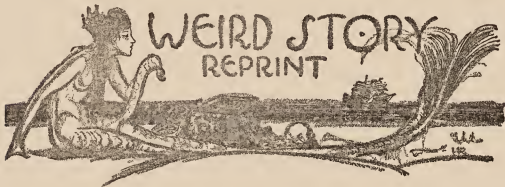 WEIRD STORY
REPRINT